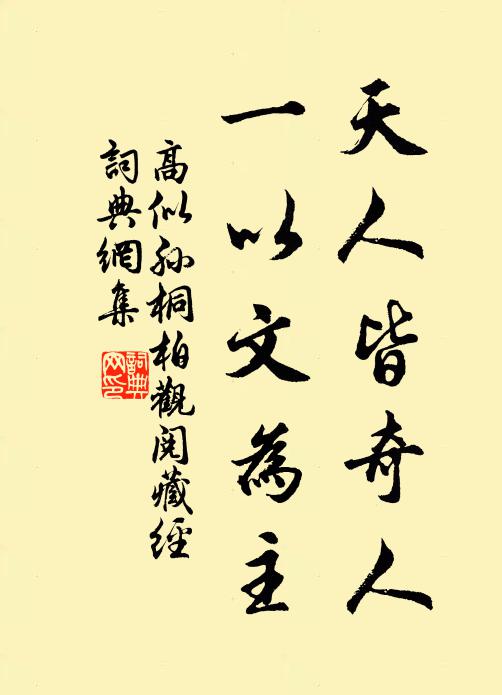 天人皆奇人
一以文為主
高似孫桐柏觀閱藏經
詞典網集
詞典网印